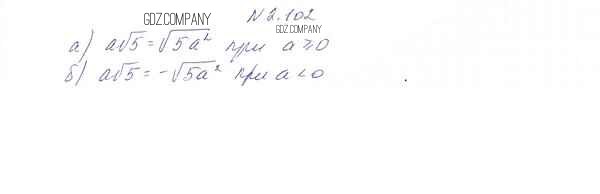 GDZ.COMPANY N 2.102
GDZ.COMPANY
а) a√5 = √5a² при a ≥ 0
б) a√5 = -√5a² при a < 0